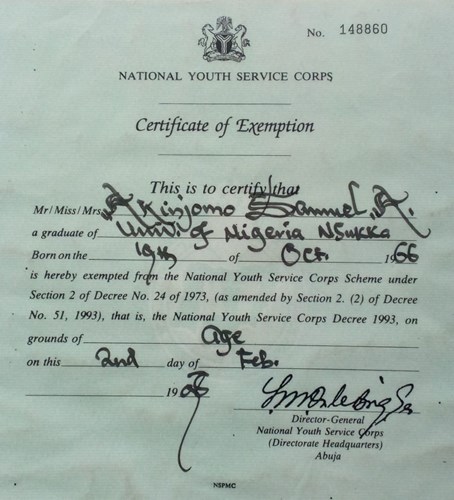 No. 148860
NATIONAL YOUTH SERVICE CORPS
Certificate of Exemption
This is to certify that
Mr/Miss/Mrs. Akinjomo Samuel, A.
a graduate of Univ. of Nigeria Nsukka
Born on the 19th of Oct. 1966
is hereby exempted from the National Youth Service Corps Scheme under
Section 2 of Decree No. 24 of 1973, (as amended by Section 2. (2) of Decree
No. 51, 1993), that is, the National Youth Service Corps Decree 1993, on
grounds of Age
on this 2nd day of Feb.
19
Director-General
National Youth Service Corps
(Directorate Headquarters)
Abuja
NSPMC